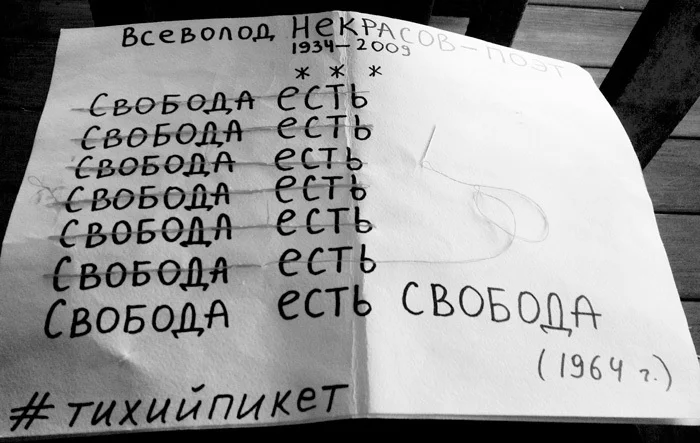 Всеволод Некрасов — поэт
1934–2009
* * *
Свобода есть
Свобода есть
Свобода есть
Свобода есть
Свобода есть
Свобода есть
Свобода есть СВОБОДА
(1964 г.)
#тихийпикет